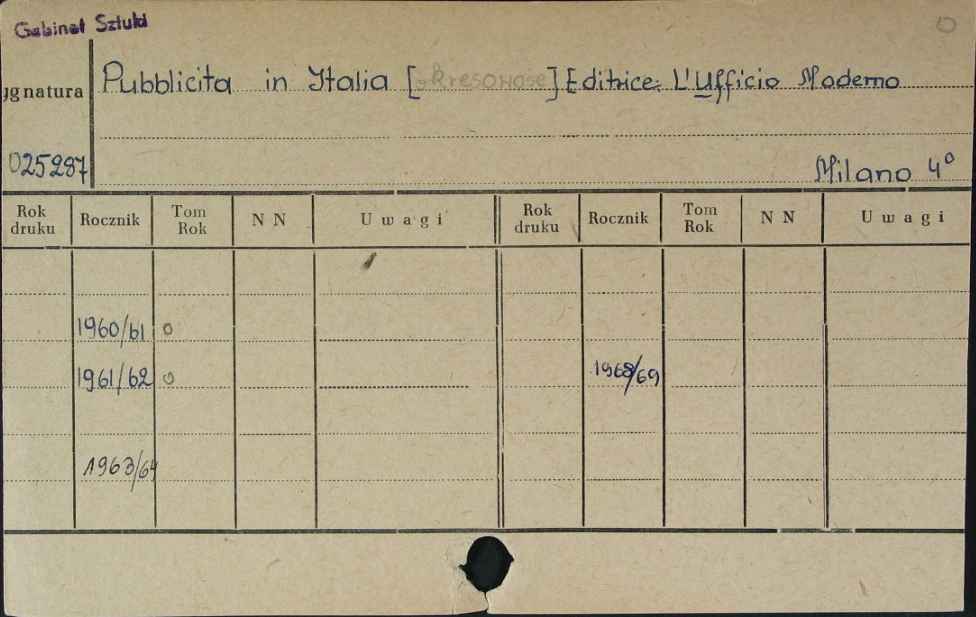 Gabinet Sztuki O
ygnatura Pubblicita in Italia [okresowose] Editrice: L'Ufficio Moderno
025287 Milano 4º
Rok druku Rocznik Tom Rok N N Uwagi Rok druku Rocznik Tom Rok N N Uwagi
1960/61 o
1961/62 o 1968/69
1963/64